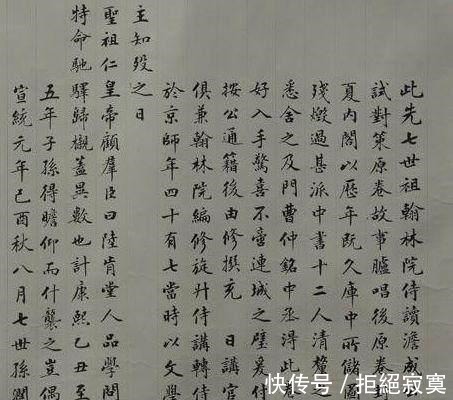 此先七世祖翰林院侍讀澹成
試對策原卷故事臚唱後原卷
夏内閣以歷年既久庫中所儲
殘燬過甚派中書十二人清釐之
悉舍之及門曹仲銘中丞得此
好入手驚喜不啻連城之璧爰付
按公通籍後由修撰充 日講官
俱兼翰林院編修旋升侍講轉侍
於京師年四十有七當時以文學
主知歿之日
聖祖仁皇帝顧羣臣曰陸肯堂人品學問
特命馳驛歸櫬蓋異數也計康熙乙丑至
五年子孫得瞻仰而什襲之豈偶
宣統元年己酉秋八月七世孫潤
快传号/拒絕寂寞